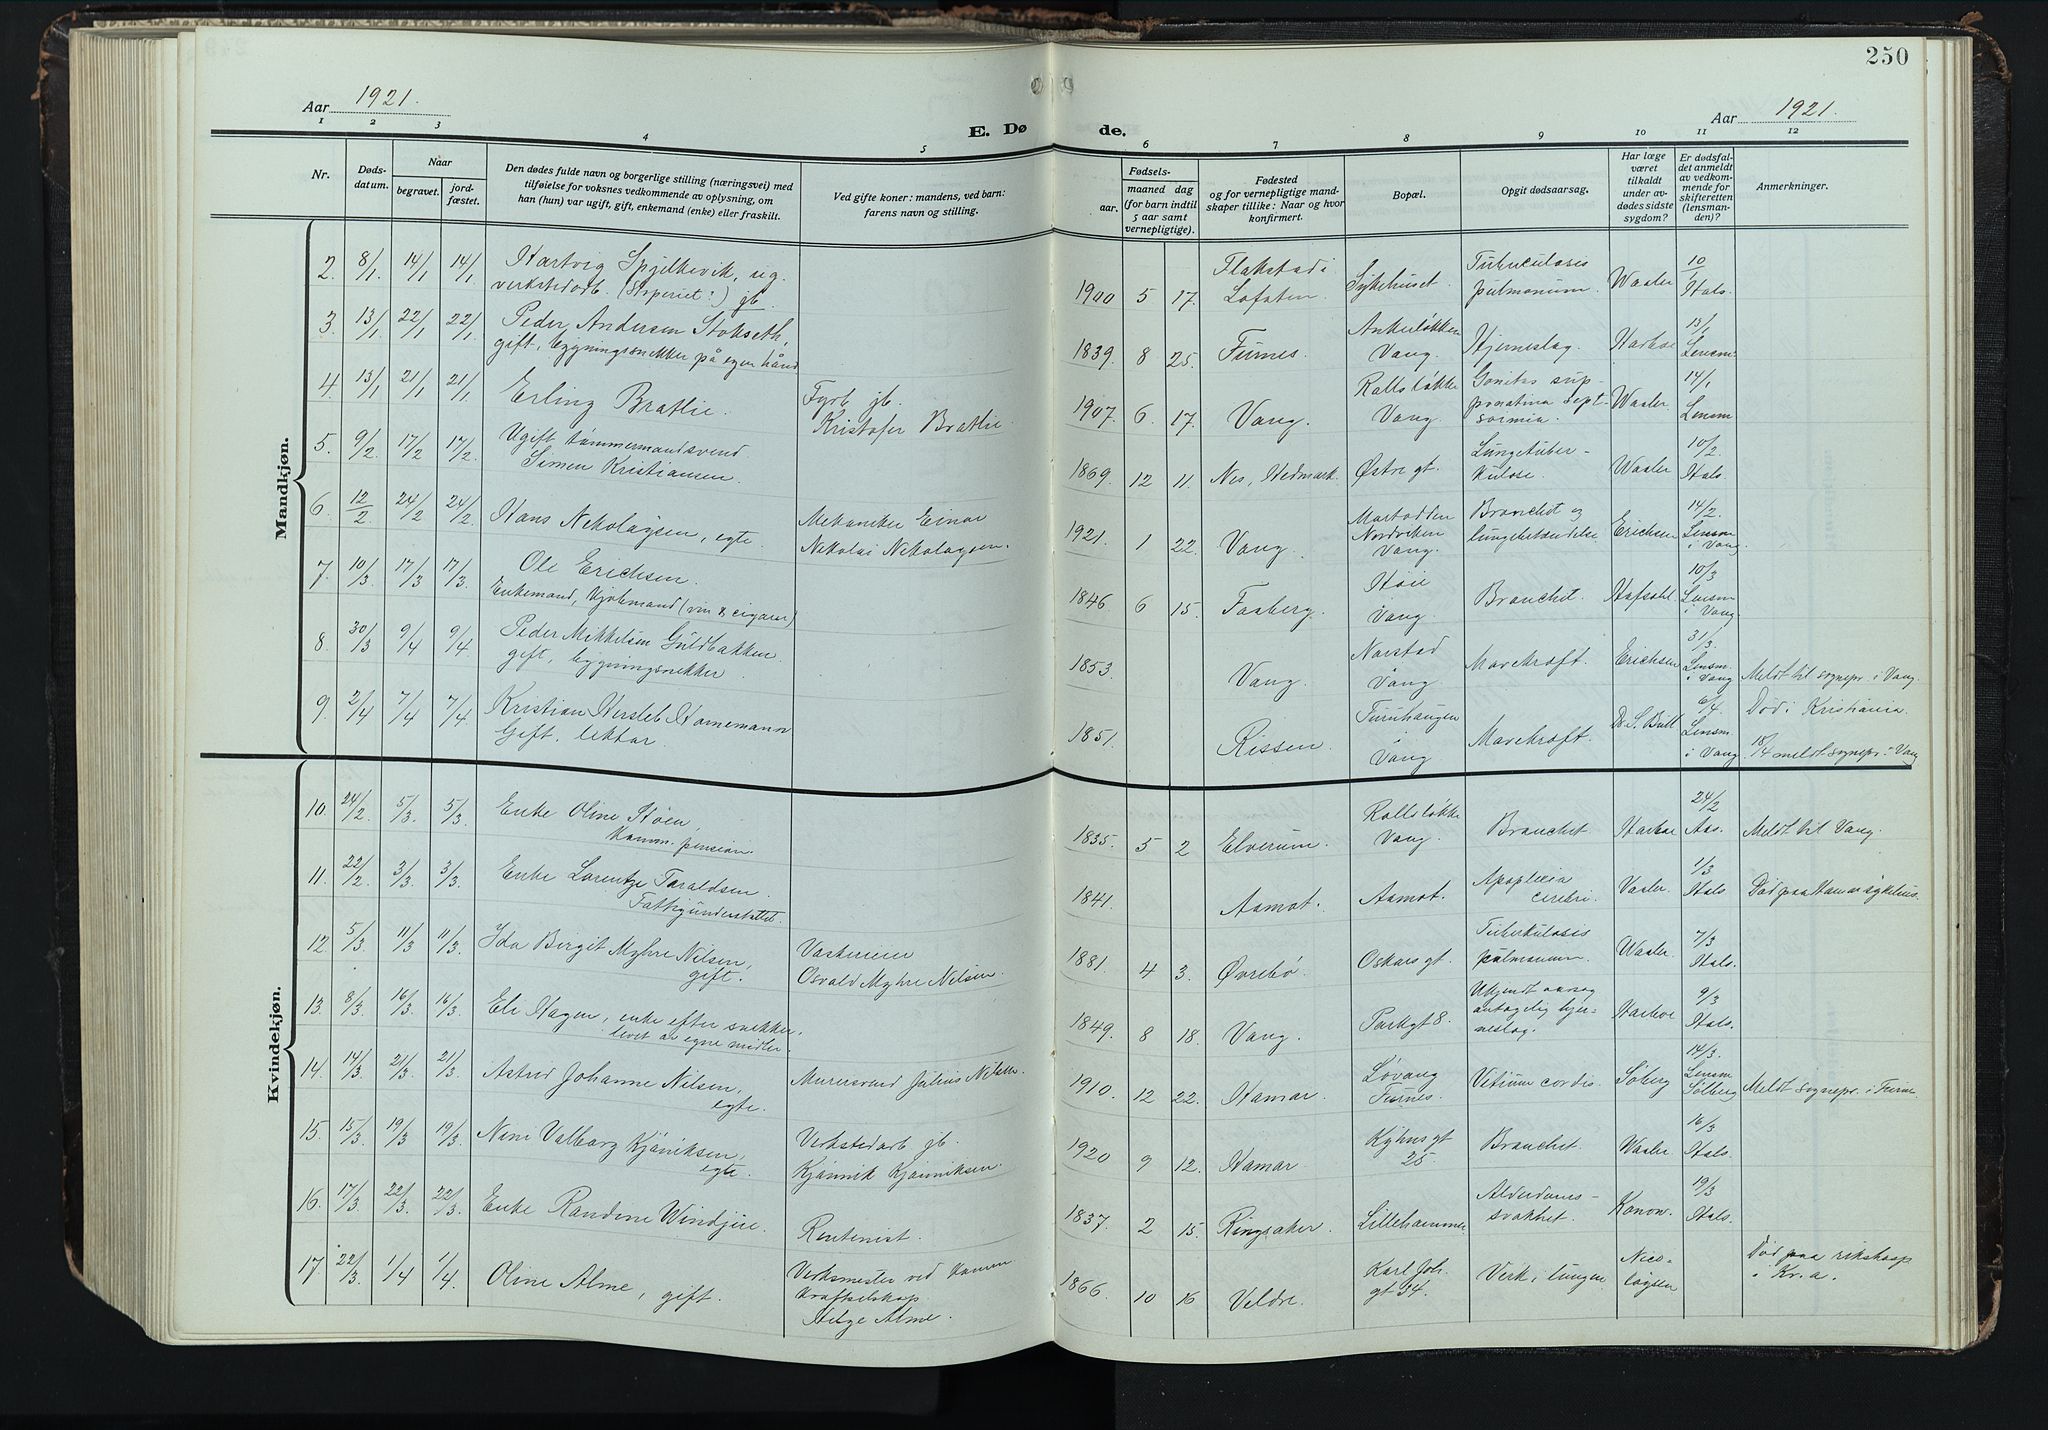 250
Aar 1921.
Aar 1921.
E. Dø de.
1 2 3 4 5 6 7 8 9 10 11 12
Nr.
Døds-
datum.
Naar
begravet.
jord-
fæstet.
Den dødes fulde navn og borgerlige stilling (næringsvei) med
tilføielse for voksnes vedkommende av oplysning, om
han (hun) var ugift, gift, enkemand (enke) eller fraskilt.
Ved gifte koner: mandens, ved barn:
farens navn og stilling.
Fødsels-
aar.
maaned dag
(for barn indtil
5 aar samt
vernepligtige).
Fødested
og for vernepligtige mand-
skaper tillike: Naar og hvor
konfirmert.
Bopæl.
Opgit dødsaarsag.
Har læge
været
tilkaldt
under av-
dødes sidste
sygdom?
Er dødsfal-
det anmeldt
av vedkom-
mende for
skifteretten
(lensman-
den)?
Anmerkninger.
Mandkjøn.
2. 8/1 14/1 14/1 Hartvig Spjelkevik, ug.
verkstedarb. (Støperiet?) jb.
1900 5 17. Flakstad i
Lofoten. Sykehuset Tuberculosis
pulmonum. Waaler 10/1
Hals.
3. 13/1 22/1 22/1 Peder Andersen Stokseth,
gift, bygningssnekker på egen hånd
1839 8 25. Furnes. Ankerløkken
Vang. Hjerneslag. Harboe 15/1
Lensm.
4. 13/1 21/1 21/1 Erling Bratlie. Fyrb. jb.
Kristofer Bratlie.
1907. 6. 17. Vang. Rollsløkke
Vang. Gonitis sup-
purativa Sept- Waaler. 14/1
Lensm
5. 9/2 17/2 17/2. Ugift tømmermandsvend
Simen Kristiansen.
1869. 12 11. Nes, Hedmark. Østre gt. Lungetuber-
kulose. Waaler 10/2.
Hals.
6. 12/2 24/2 24/2. Hans Nikolaysen, egte. Mekaniker Einar
Nikolai Nikolaysen.
1921. 1 22. Vang. Martodden
Nordviken
Vang. Bronchit og
lungebetændelse Erichsen 14/2.
Lensm
i Vang.
7. 10/3 17/3 17/3. Ole Erichsen.
Enkemand, Kjøbmand (vin & cigarer)
1846. 6 15. Faaberg. Høie
Vang. Bronchit. Hafsahl 10/3
Lensm
i Vang
8. 30/3 9/4 9/4. Peder Mikkelsen Guldbakken.
gift, bygningssnekker.
1853. Vang. Norstad
Vang. Mavekræft. Erichsen 31/3.
Lensm.
i Vang Meldt til sognepr. i Vang.
9. 2/4 7/4 7/4. Kristian Hersleb Hornemann
Gift, lektor.
1851. Rissen. Furuhaugen
Vang Mavekræft. Dr. S. Bull 6/4
Lensm.
i Vang. Død i Kristiania.
18/4 meldt sognepr. i Vang
Kvindekjøn.
10. 24/2 5/3. 5/3. Enke Oline Høen,
Komm. pension.
1835. 5 2 Elverum. Rollsløkke
Vang Bronchit Harboe 24/2
Aas. Meldt til Vang.
11. 22/2. 3/3. 3/3. Enke Lorentze Taraldsen.
Fattigunderstøttet.
1841. Aamot. Aamot. Apoplexia
cerebri. Vaaler. 1/3
Hals. Død paa Hamar sykehus.
12. 5/3 11/3 11/3. Ida Birgit Myhre Nilsen,
gift. Vaskerieier
Osvald Myhre Nilsen.
1881. 4 3. Øvrebø. Oskars gt. Tuberkulosis
pulmonum. Waaler. 7/3
Hals.
13. 8/3. 16/3 16/3. Eli Hagen, enke efter snekker,
levet av egne midler.
1849. 8 18. Vang. Parkgt 8. Ukjendt aarsag
antagelig hjer-
neslag. Harboe 9/3
Hals.
14. 14/3. 21/3. 21/3. Astrid Johanne Nilsen,
egte. Murersvend Julius Nilsen.
1910. 12 22. Hamar. Løvang
Furnes. Vitium cordis. Solberg 14/3.
Lensm
Solberg Meldt sognepr. i Furnes.
15. 15/3. 19/3 19/3. Nini Valborg Kjønniksen,
egte. Verkstedarb jb.
Kjønnik Kjønniksen.
1920 9 12. Hamar Kyhns gt
25 Bronchit. Waaler 16/3
Hals.
16. 17/3. 22/3. 22/3. Enke Randine Windju. Rentenist.
1837. 2 15. Ringsaker. Lillehammer Alderdoms-
svakhet. Konow. 19/3
Hals.
17. 22/3. 1/4 1/4. Oline Alme, gift. Verksmester ved Hamar
kraftselskap
Helge Alme.
1866. 10 16 Veldre. Karl Joh.
gt 34. Verk i lungen Nico-
laysen Død paa rikshosp
i Kr.a.